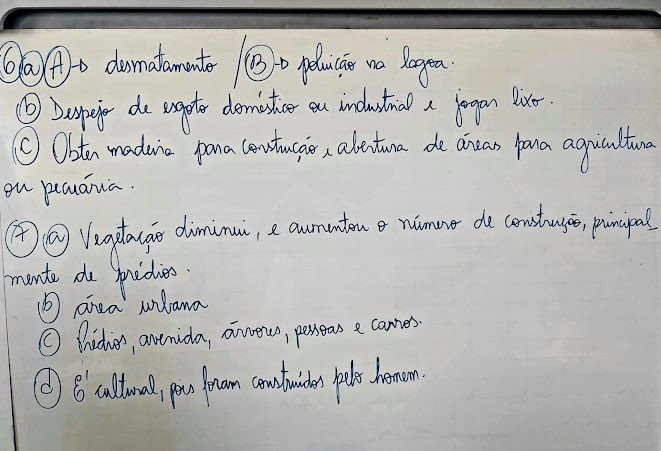 6 a A → desmatamento / B → poluição na lagoa.
b Despejo de esgoto doméstico ou industrial e jogar lixo.
c Obter madeira para construção, abertura de áreas para agricultura
ou pecuária.
7 a Vegetação diminui, e aumentou o número de construção, principal_
mente de prédios.
b área urbana
c Prédios, avenida, árvores, pessoas e carros.
d É cultural, pois foram construídos pelo homem.